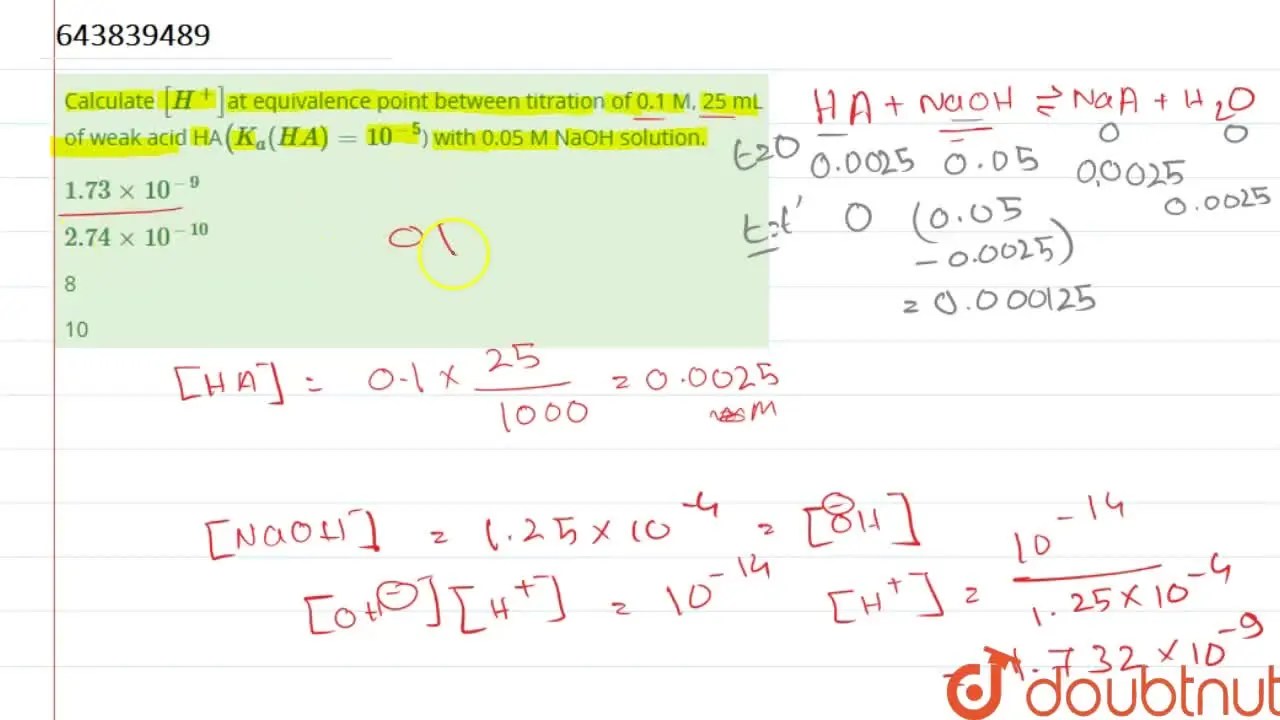 643839489
Calculate [H⁺] at equivalence point between titration of 0.1 M, 25 mL
of weak acid HA(Kₐ(HA) = 10⁻⁵) with 0.05 M NaOH solution.
1.73 × 10⁻⁹
2.74 × 10⁻¹⁰
8
10
HA + NaOH ⇌ NaA + H₂O
0 0
t=0 0.0025 0.05 0.0025
0.0025
t=t' 0 (0.05
- 0.0025)
= 0.000125
[HA] = 0.1 × 25/1000 = 0.0025
M
[NaOH] = 1.25 × 10⁻⁴ = [OH⁻]
[OH⁻][H⁺] = 10⁻¹⁴ [H⁺] = 10⁻¹⁴/1.25 × 10⁻⁴
= 1.732 × 10⁻⁹
doubtnut